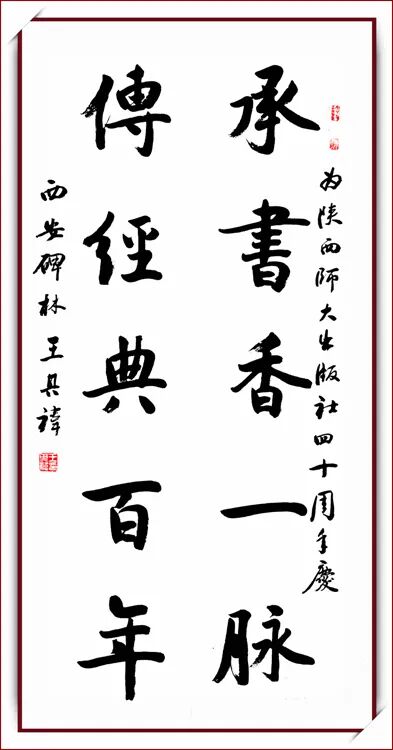 为陕西师大出版社四十周年慶
承書香一脉
傳經典百年
西安碑林王其禕